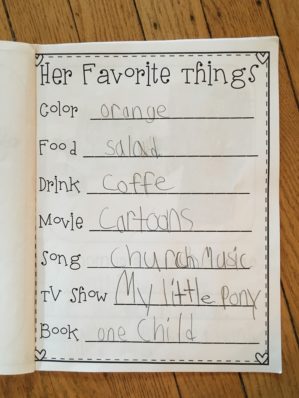 Her Favorite Things
Color orange
Food salad
Drink Coffe
Movie Cartoons
Song Church Music
TV Show My little Pony
Book one Child